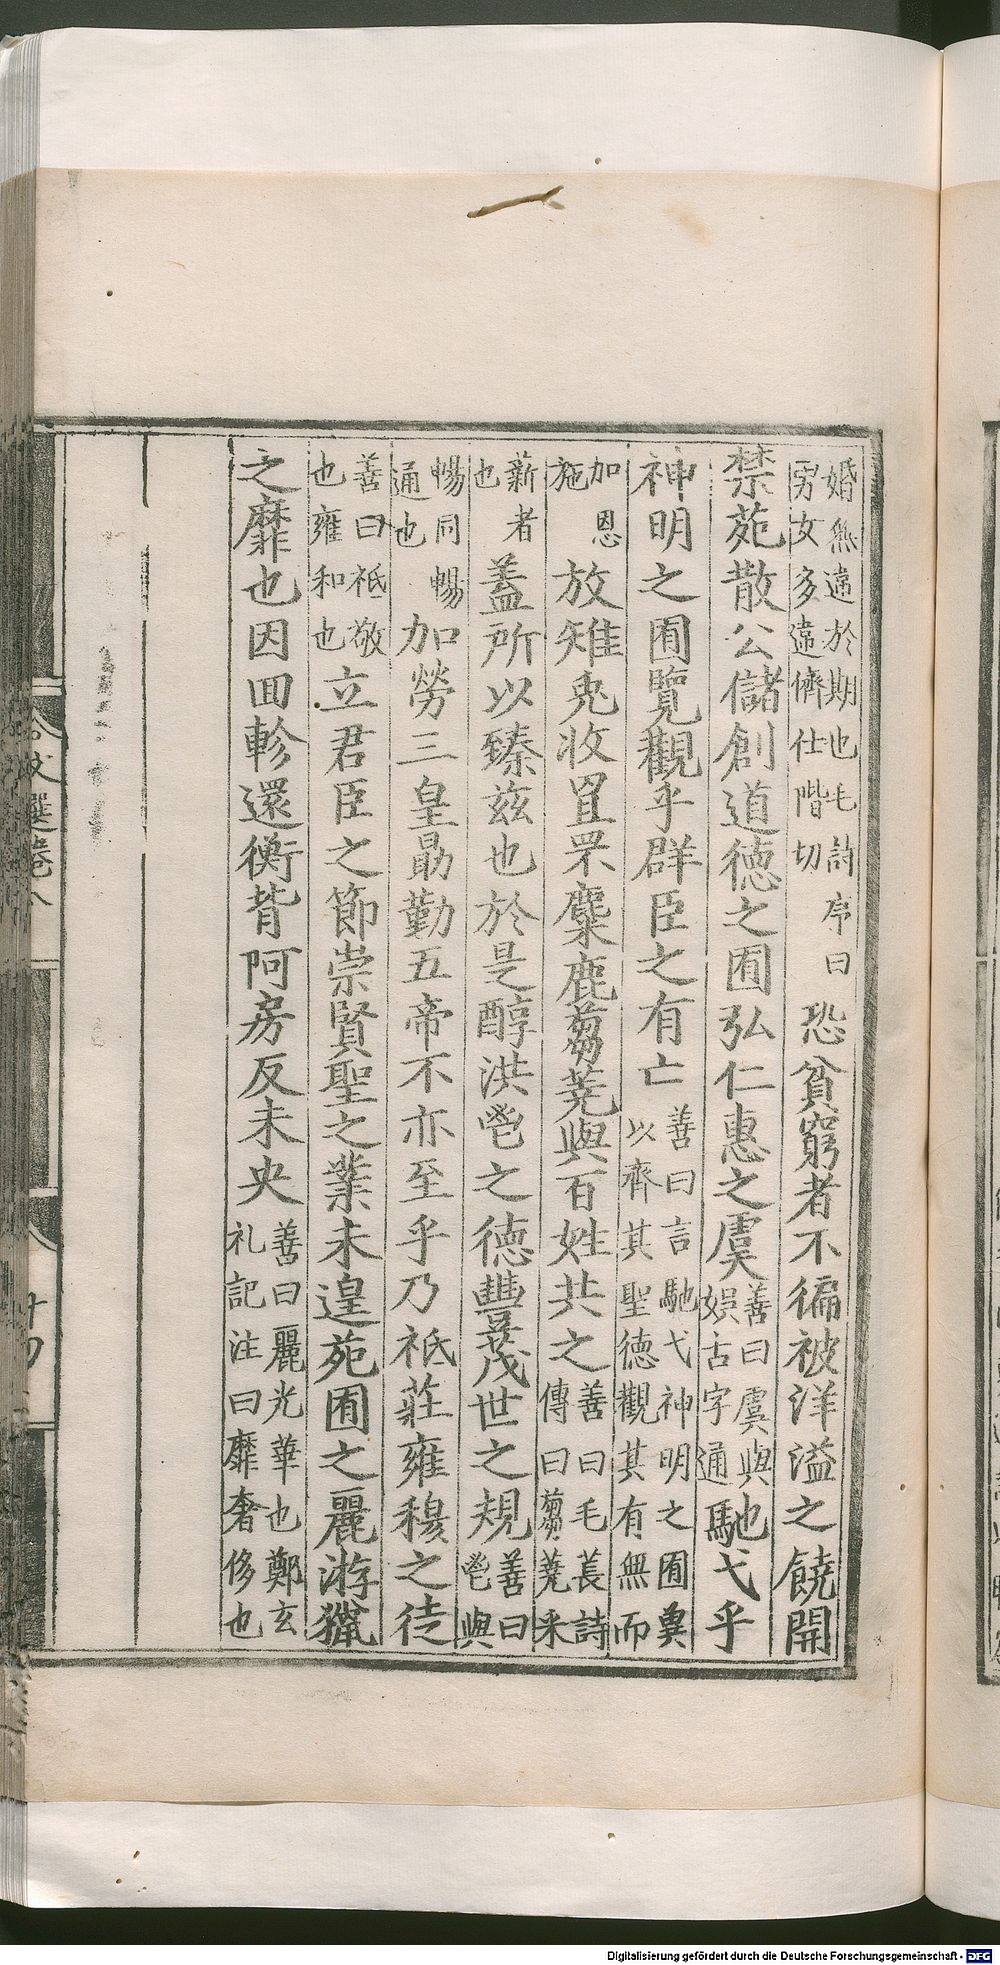 婚無違於期也毛詩序曰
男女多違儕仕階切
恐貧窮者不徧被洋溢之饒開
禁苑散公儲創道德之囿弘仁惠之虞
善曰虞與
娛古字通
馳弋乎
神明之囿覽觀乎群臣之有亡
善曰言馳弋神明之囿冀
以齊其聖德觀其有無而
加恩
施
放雉兎收罝罘麋鹿芻蕘與百姓共之
善曰毛萇詩
傳曰芻蕘采
薪者
也
蓋所以臻茲也於是醇洪鬯之德豐茂世之規
善曰
鬯與
暢同暢
通也
加勞三皇勗勤五帝不亦至乎乃祗莊雍穆之徒
善曰祗敬
也雍和也
立君臣之節崇賢聖之業未遑苑囿之麗游獵
之靡也因囬軫還衡背阿房反未央
善曰麗光華也鄭玄
礼記注曰靡奢侈也
文選卷八
十四
Digitalisierung gefördert durch die Deutsche Forschungsgemeinschaft - DFG